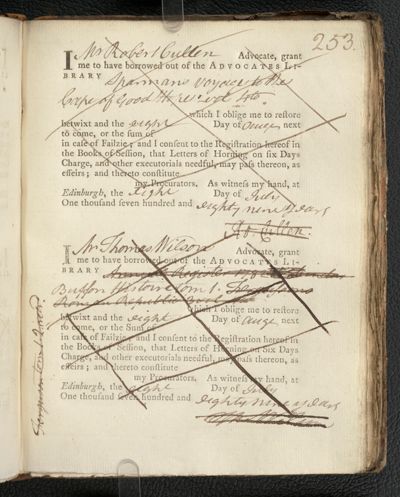 253.
I Mr Robert Cullen Advocate, grant
me to have borrowed out of the ADVOCATES LI-
BRARY Sparmans Voyages to the
Cape of Good
which I oblige me to restore
betwixt and the eight Day of next
to come, or the sum of
in case of Failzie; and I consent to the Registration hereof in
the Books of Session, that Letters of Horning on six Days
Charge, and other executorials needful, may pass thereon, as
effeirs; and thereto constitute
my Procurators. As witness my hand, at
Edinburgh, the eight Day of July
One thousand seven hundred and eighty nine years
Ro. Cullen.
I Mr Thomas Wilson Advocate, grant
me to have borrowed out of the ADVOCATES LI-
BRARY
Buffon Histoire Tom 1.
Roman Republic
which I oblige me to restore
betwixt and the eight Day of next
to come, or the Sum of
in case of Failzie; and I consent to the Registration hereof in
the Books of Session, that Letters of Horning on Six Days
Charge, and other executorials needful, may pass thereon, as
effeirs; and thereto constitute
my Procurators. As witness my hand, at
Edinburgh, the eight Day of July
One thousand seven hundred and eighty nine years